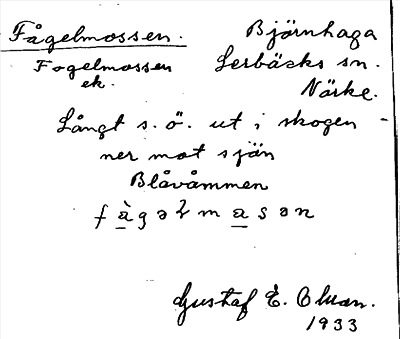 Fågelmossen. Björnhaga
Fogelmossen Lerbäcks sn.
ek. Närke.
Långt s.ö. ut i skogen
ner mot sjön
Blåvåmmen
Gustaf E.
1933